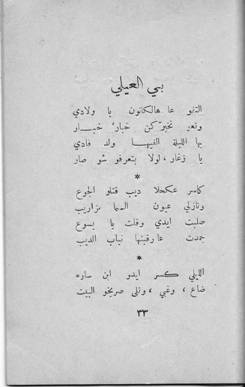 بي العيلي
التمو عا هالكانون يا ولادي
وتعبو تخبركن خبار خبار
بها الليلة الفيها ولد فادي
يا زغار، لولا بتعرفو شو صار
*
كاسر عكحلا ديب قتلو الجوع
ونازلي عيون السما مزاريب
صلبت ايدي وقلت يا يسوع
جمدت عا رقبتها نياب الديب
*
الليلي كسر ايدو ابن ساره
ضاع، وغبي، وتلى صريخو البيت
٣٣